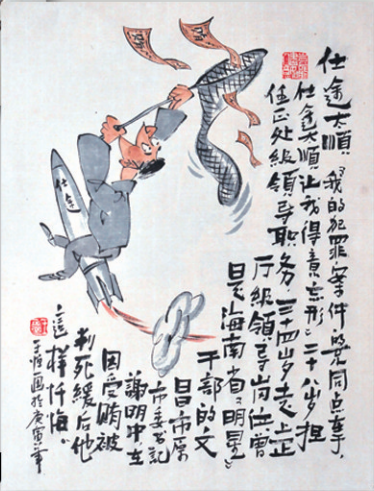 仕途太顺 我的犯罪案件 同点在
仕途太顺让我得意忘形、二十八岁担
任正处级领导职务、三十四岁走上正
厅级领导岗位、曾
是海南省“明星”
干部的文
昌市原
市委书记
谢明中在
因受贿被
判死缓后他
这样忏悔。
画于庚寅年
仕途